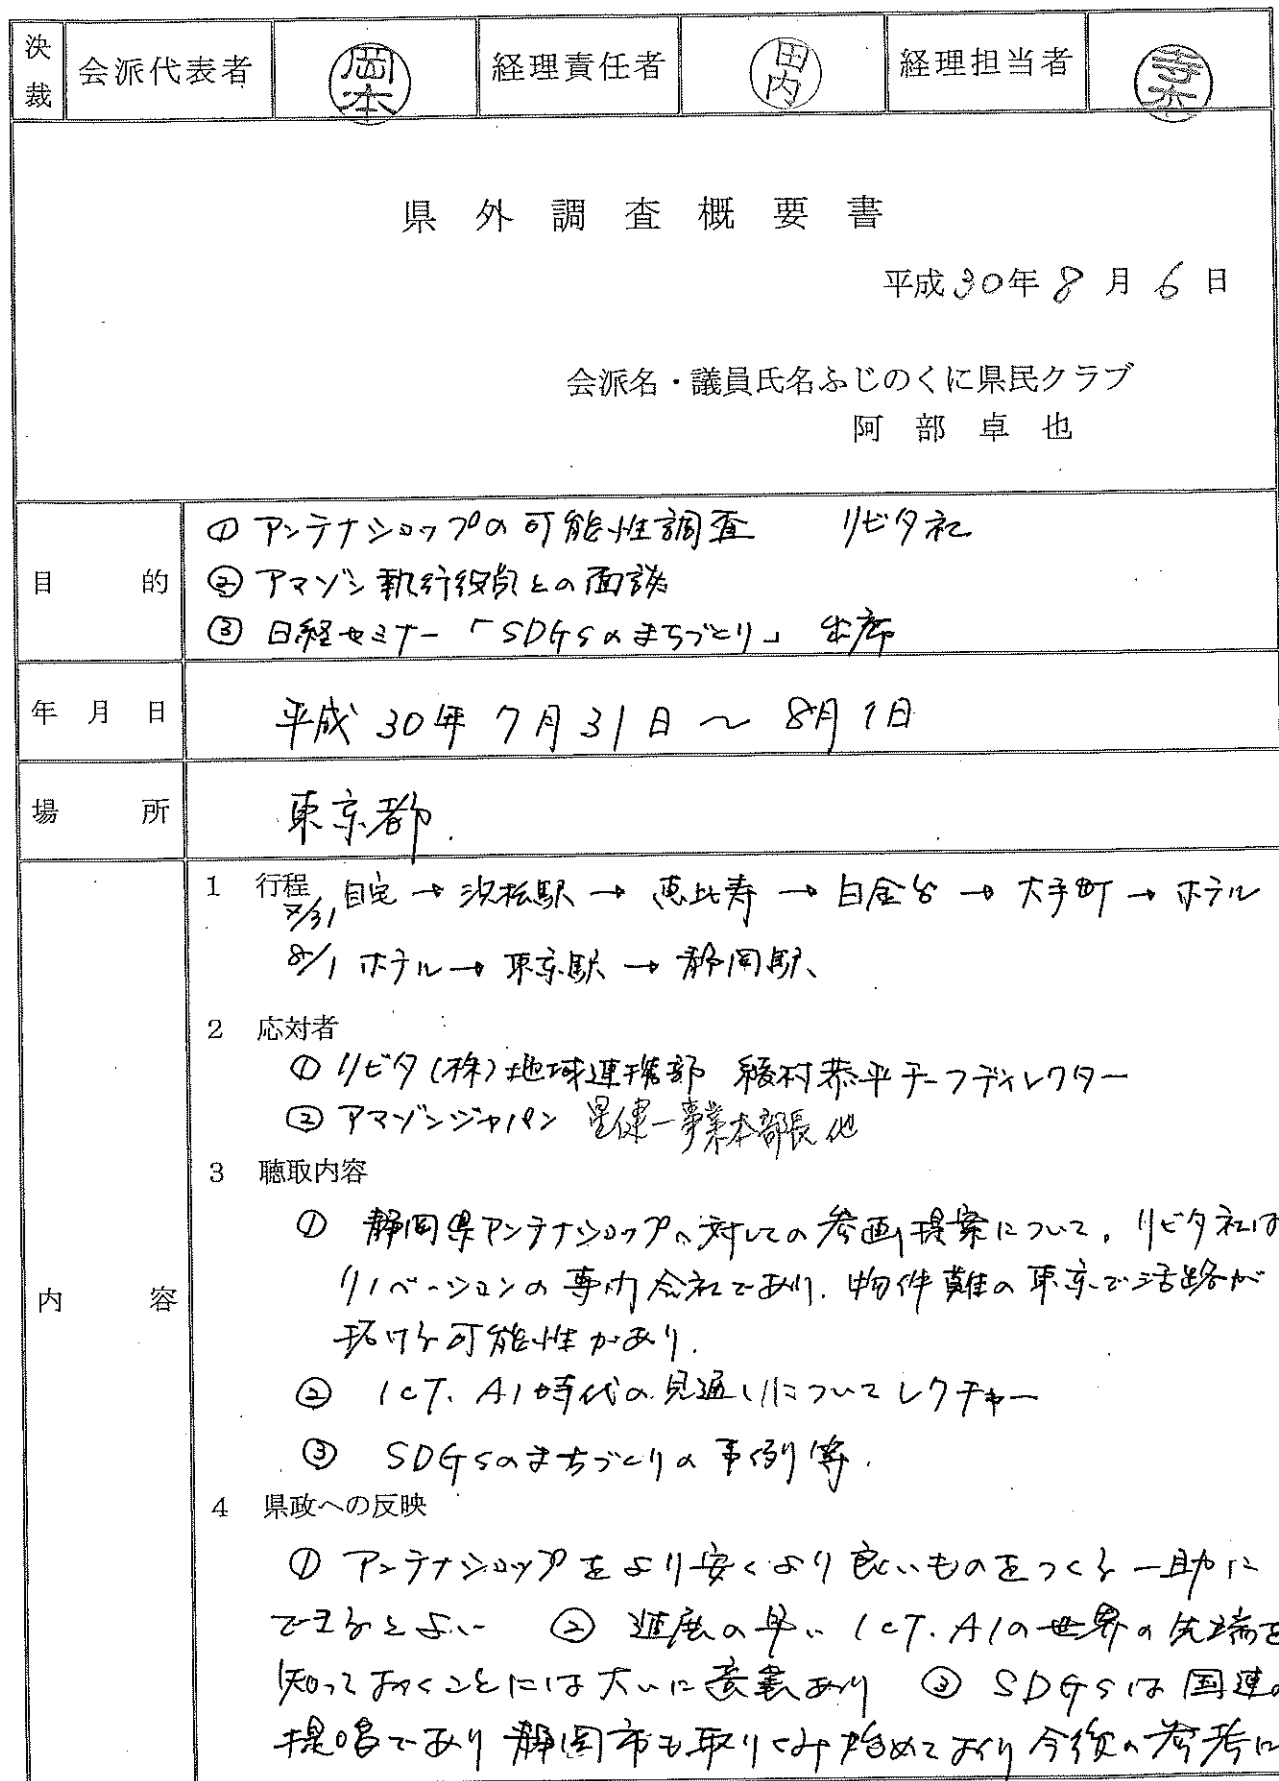 決裁 会派代表者 岡本 経理責任者 田内 経理担当者
県外調査概要書
平成30年8月6日
会派名・議員氏名ふじのくに県民クラブ
阿部卓也
目的
① アンテナショップの可能性調査 リビタ社
② アマゾン執行役員との面談
③ 日経セミナー「SDGsのまちづくり」出席
年月日 平成30年7月31日～8月1日
場所 東京都
内容
1 行程
7/31 自宅→浜松駅→恵比寿→白金台→大手町→ホテル
8/1 ホテル→東京駅→静岡駅、
2 応対者
① リビタ(株)地域連携部 綾村恭平チーフディレクター
② アマゾンジャパン 星健一事業本部長他
3 聴取内容
① 静岡県アンテナショップへ対しての参画提案について。リビタ社は
リノベーションの専門会社であり、物件難の東京で活路が
拓ける可能性があり.
② ICT、AI時代の見通しについてレクチャー
③ SDGsのまちづくりの事例等.
4 県政への反映
① アンテナショップをより安くより良いものをつくる一助に
できるとよい ② 進展の早い ICT、AIの世界の先端を
知っておくことには大いに意義あり ③ SDGsは国連の
提唱であり静岡市も取りくみ始めており今後の参考に